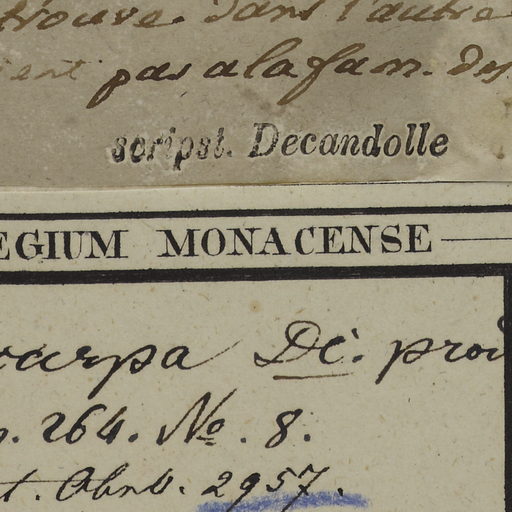 trouve. dans l'autre
ient pas a la fam. des
scripst. Decandolle
EGIUM MONACENSE
carpa DC. prod
p. 264. No. 8.
t. Obnb. 2957.